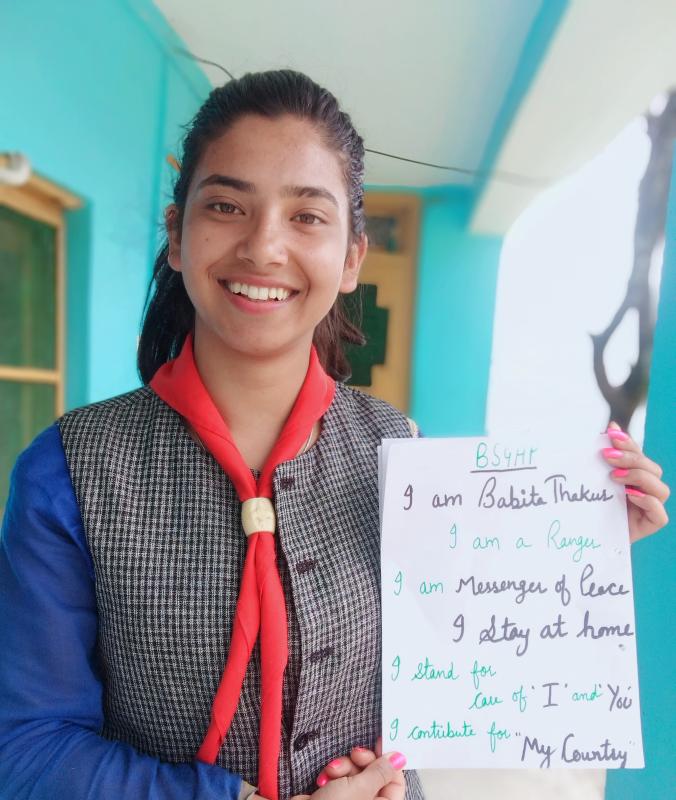 BS4HP
I am Babita Thakur
I am a Ranger
I am Messenger of Peace
I Stay at home
I stand for
care of "I" and "You"
I contribute for
"My Country"